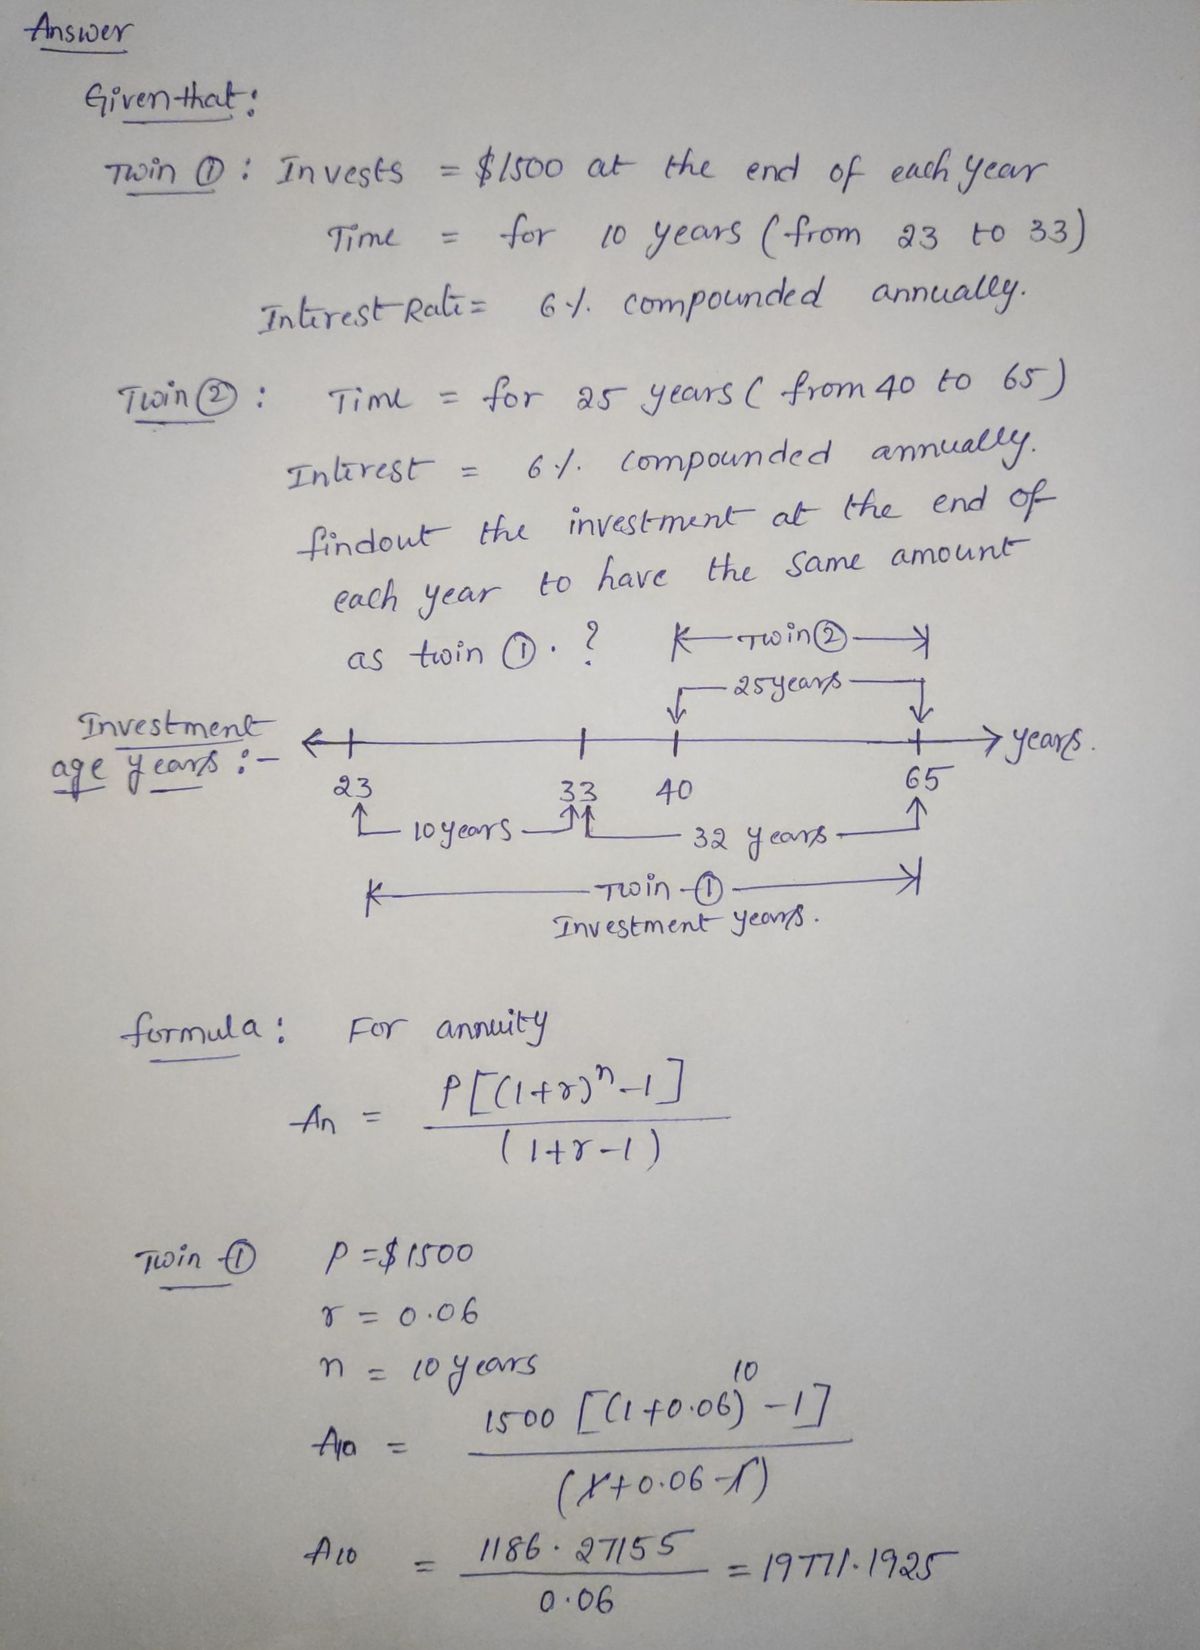 Answer
Given that:
Twin ①: Invests = $1500 at the end of each year
Time = for 10 years (from 23 to 33)
Interest Rate = 6%. compounded annually.
Twin ②: Time = for 25 years (from 40 to 65)
Interest = 6%. compounded annually.
findout the investment at the end of
each year to have the same amount
as twin ①. ?
Twin ②
25 years
Investment
age years :-
years.
23 33 40 65
10 years 32 years
Twin - ①
Investment years.
formula: For annuity
An = P[(1+r)^n - 1] / (1+r-1)
Twin ① P = $1500
r = 0.06
n = 10 years
A10 = 1500 [(1+0.06)^10 - 1] / (1+0.06-1)
A10 = 1186.27155 / 0.06 = 19771.1925